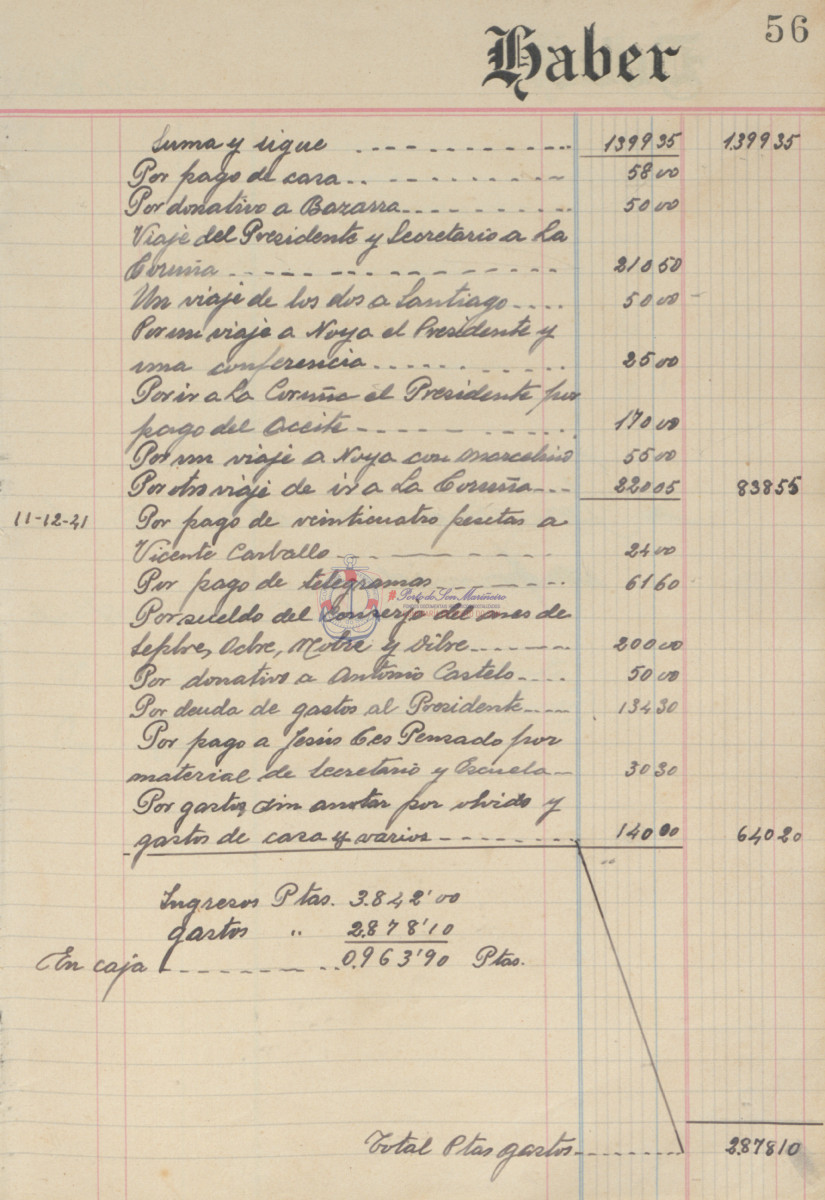 56
Haber
Suma y sigue ............ 1399 35 1.399 35
Por pago de casa .. ........ 58 00
Por donativo a Bazarra ........ 50 00
Viaje del Presidente y Secretario a La
Coruña ............ 210 50
Un viaje de los dos a Santiago .... 50 00
Por un viaje a Noya el Presidente y
una conferencia ............ 25 00
Por ir a La Coruña el Presidente por
pago del Aceite ........ 170 00
Por un viaje a Noya con Marcelino 55 00
Por otro viaje de ir a La Coruña ... 220 05 838 55
11-12-41 Por pago de veinticuatro pesetas a
Vicente Carballo ........ 24 00
Por pago de telegramas ........ 61 60
Por sueldo del Conserje del mes de
Sepbre, Ocbre, Nobre y Dibre ........ 200 00
Por donativo a Antonio Castelo .... 50 00
Por deuda de gastos al Presidente .... 134 30
Por pago a Jesús Ces Pensado por
material de Secretario y Escuela - 30 30
Por gastos sin anotar por olvido y
gastos de casa y varios ........ 140 00 640 20
Ingresos Ptas. 3.842'00
gastos " 2.878'10
En caja ........ 0.963'90 Ptas.
Total Ptas gastos ........ 2.878 10
Porto do Son Mariñeiro